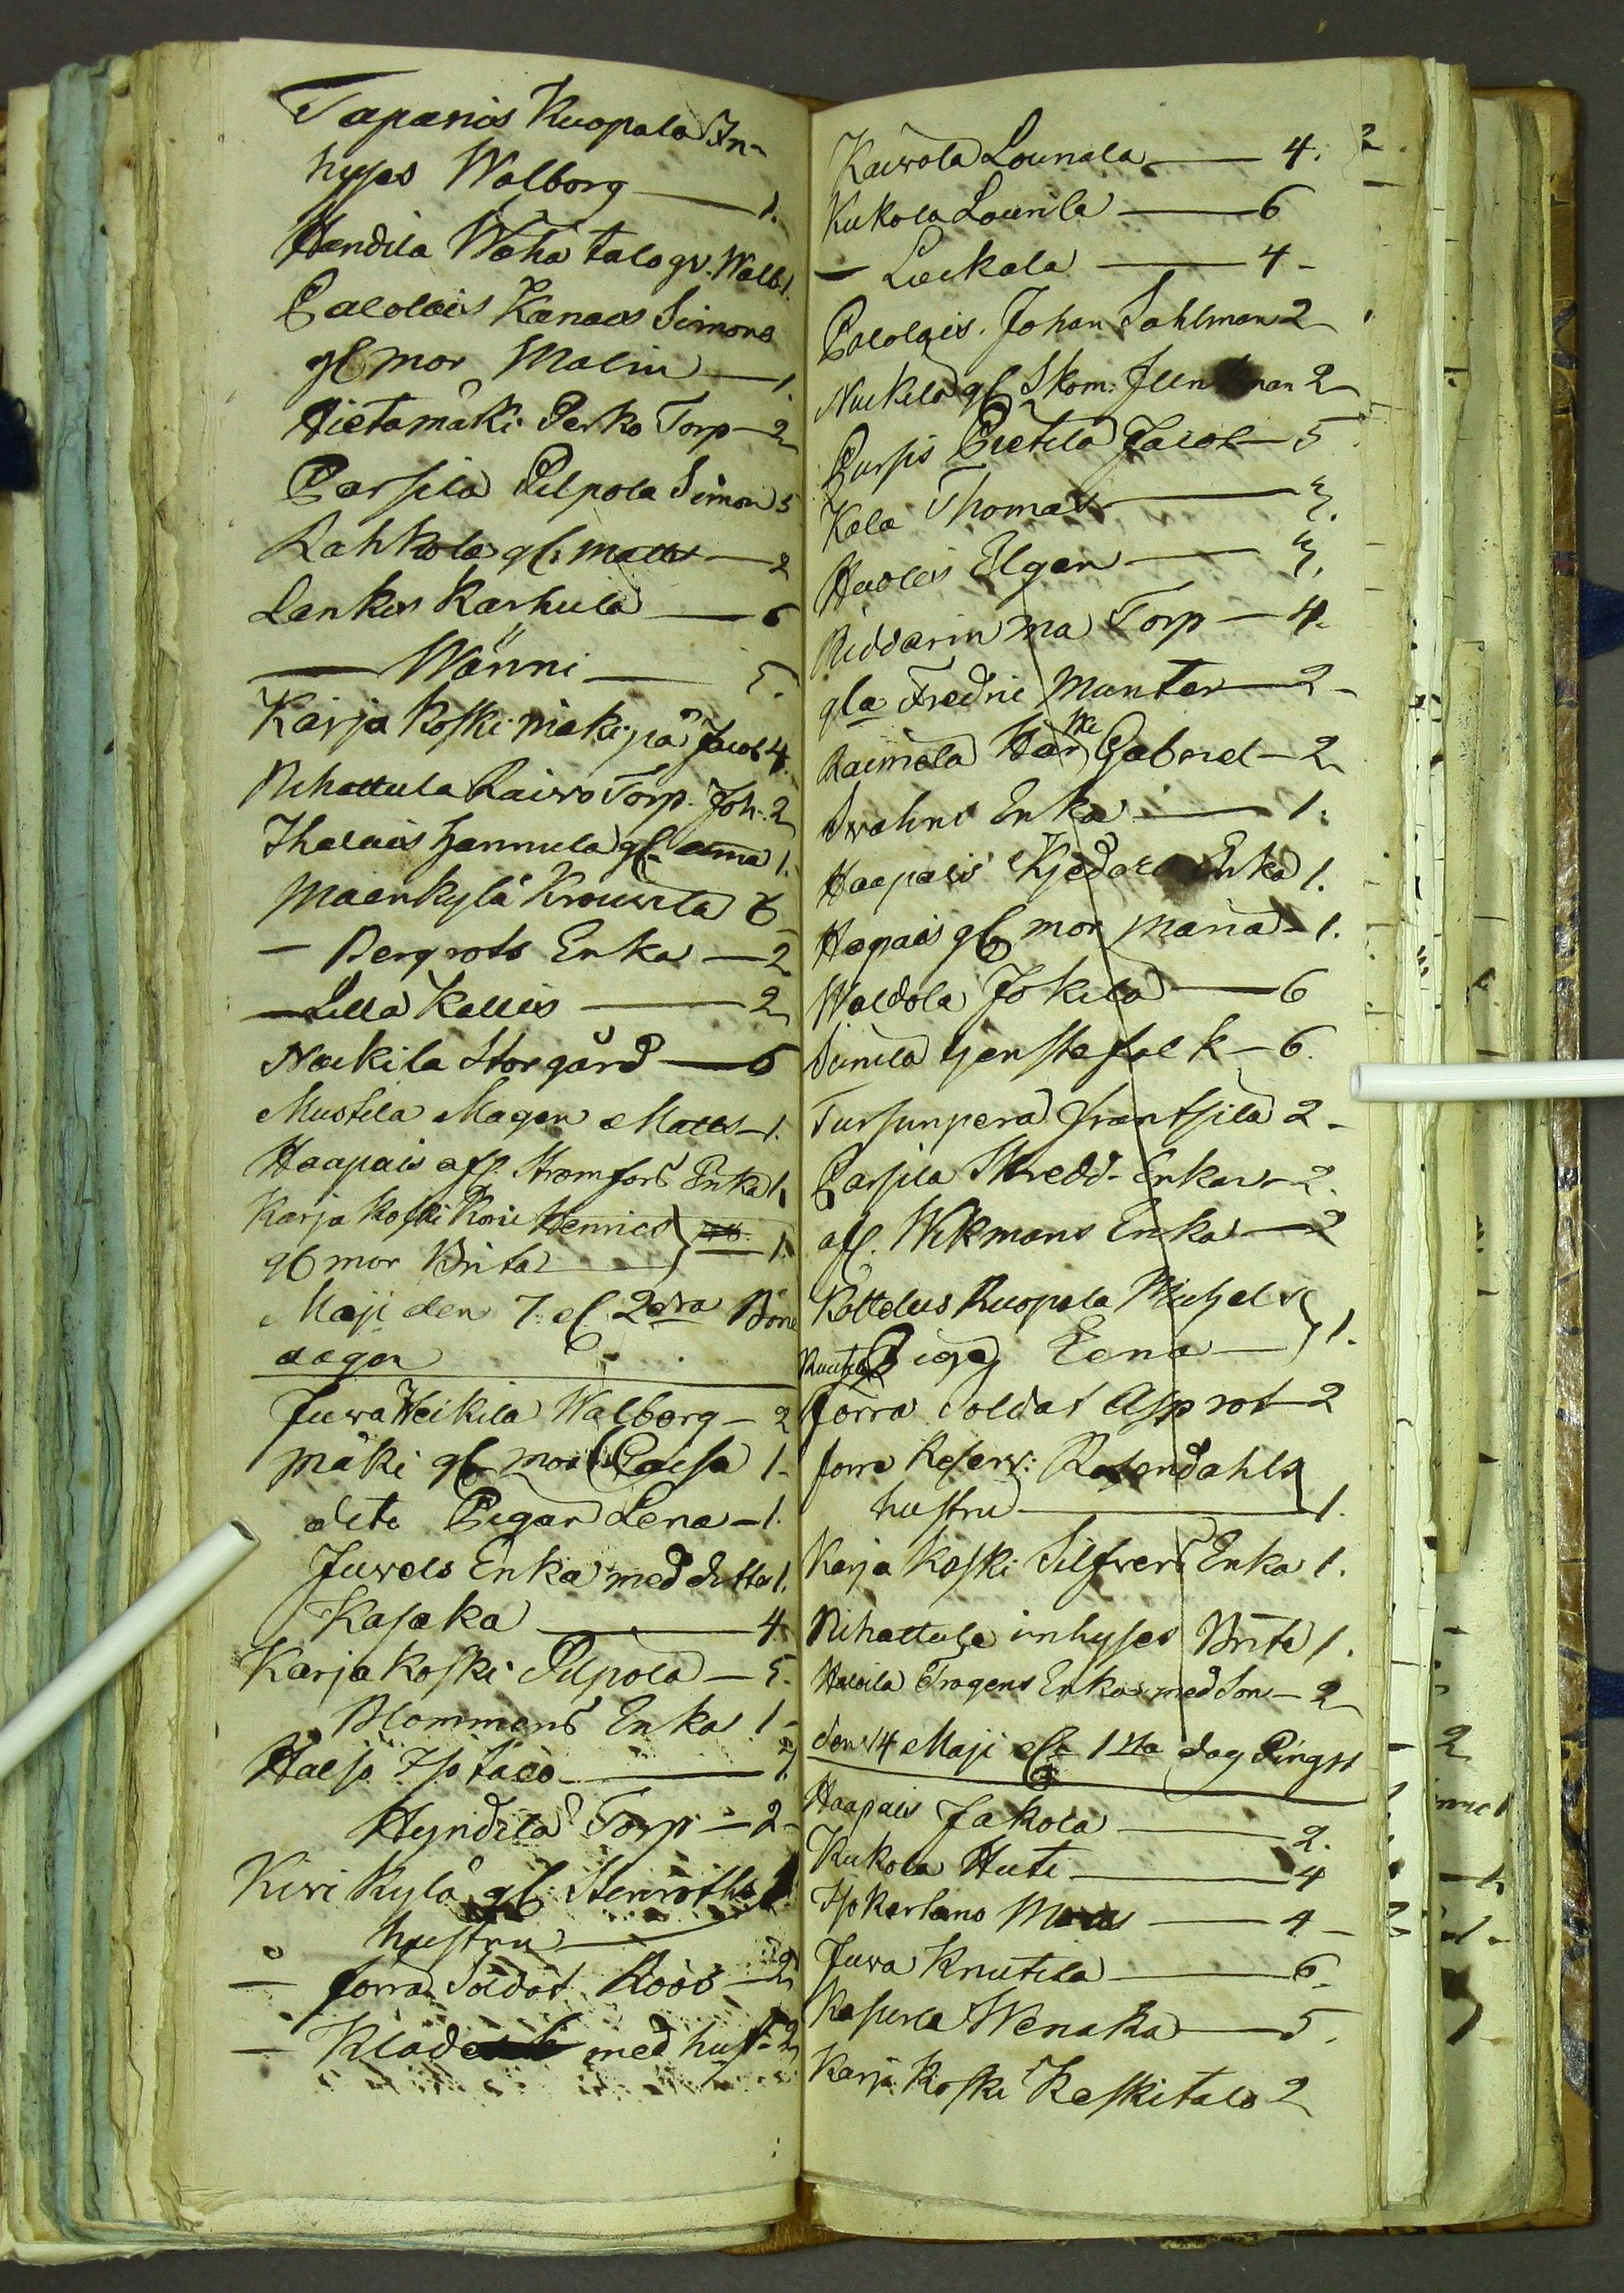 Tapanis Kuopala In-
hyses Walborg — 1.
Hendila Wäha talo gv. Walb. 1.
Palolais Kanaes Simons
gl mor Malin — 1.
Hietamäki Perko Torp — 2
Parsila Pilpola Simon 5
Rahkola gl. Matts — 2
Lankos Karhula — 6
— Wänni — 5.
Karja Koski mäki på Jacob 4.
Rihattula Raiwo Torp. Joh. 2
Ihalais Hannula gl ama 1.
Maenkylä Krouvila 6
— Bergrots Enka — 2
— Lilla Kallis — 2
Naukila Storgård — 6
Mustila Magen Matts — 1.
Haapais afl. Strömfors Enka 1.
Karja Koski Henrics
gl mor Brita } — 1.
Maji den 7. el 2dra Böne
dagen
Juva Heikila Walborg — 2
mäki gl mor Caisa 1.
dito Pigan Lena — 1.
Juvels Enka med dotter 1.
Kasaka — 4.
Karja Koski Pilpola — 5.
Blommens Enka 1 —
Halso Iso talo — 7
Hyndilä Torp — 2 —
Kirikylä gl. Stenroths
hustru — 1
— forra Soldat Roos — 2
— Klade med hust. 2
Kaivola Lounala — 4.
Kukola Lounila — 6
— Luckala — 4 —
Palolais. Johan Sahlman 2
Naukila gl Skom. man 2
Pursis Pietilä Jacob — 5
Kala Thomas — 3.
Huolis Elgen — 3.
Riddarin ma Torp — 4.
gla Fredric Munter — 2 —
Raimela Här Gabriel — 2
Svahns Enka — 1.
Haapais Enka 1.
Hapais gl mor Maria — 1.
Waldola Jokela — 6
Sunila tjenstefolk — 6.
Tursunpera Frantsila 2 —
Parsila Skredd. Enkan — 2.
afl. Wikmans Enka — 2
Kottelus Ruopala Michels
Piga Lena — } 1.
förra Soldat Asprot — 2
forre Reserv: Rosendahls
hustru — 1.
Karja Koski Silfvers Enka 1.
Rihattula inhyses Brita 1.
Halvila Tragens Enka med Son — 2
den 14 Maji el 1sta dag Pingst
Haapais Jakola — 2.
Kukola Huti — 4
— 4 —
Juva Knutila — 6.
Kasurla Wenaka — 5.
Karja Koski Keskitalo 2